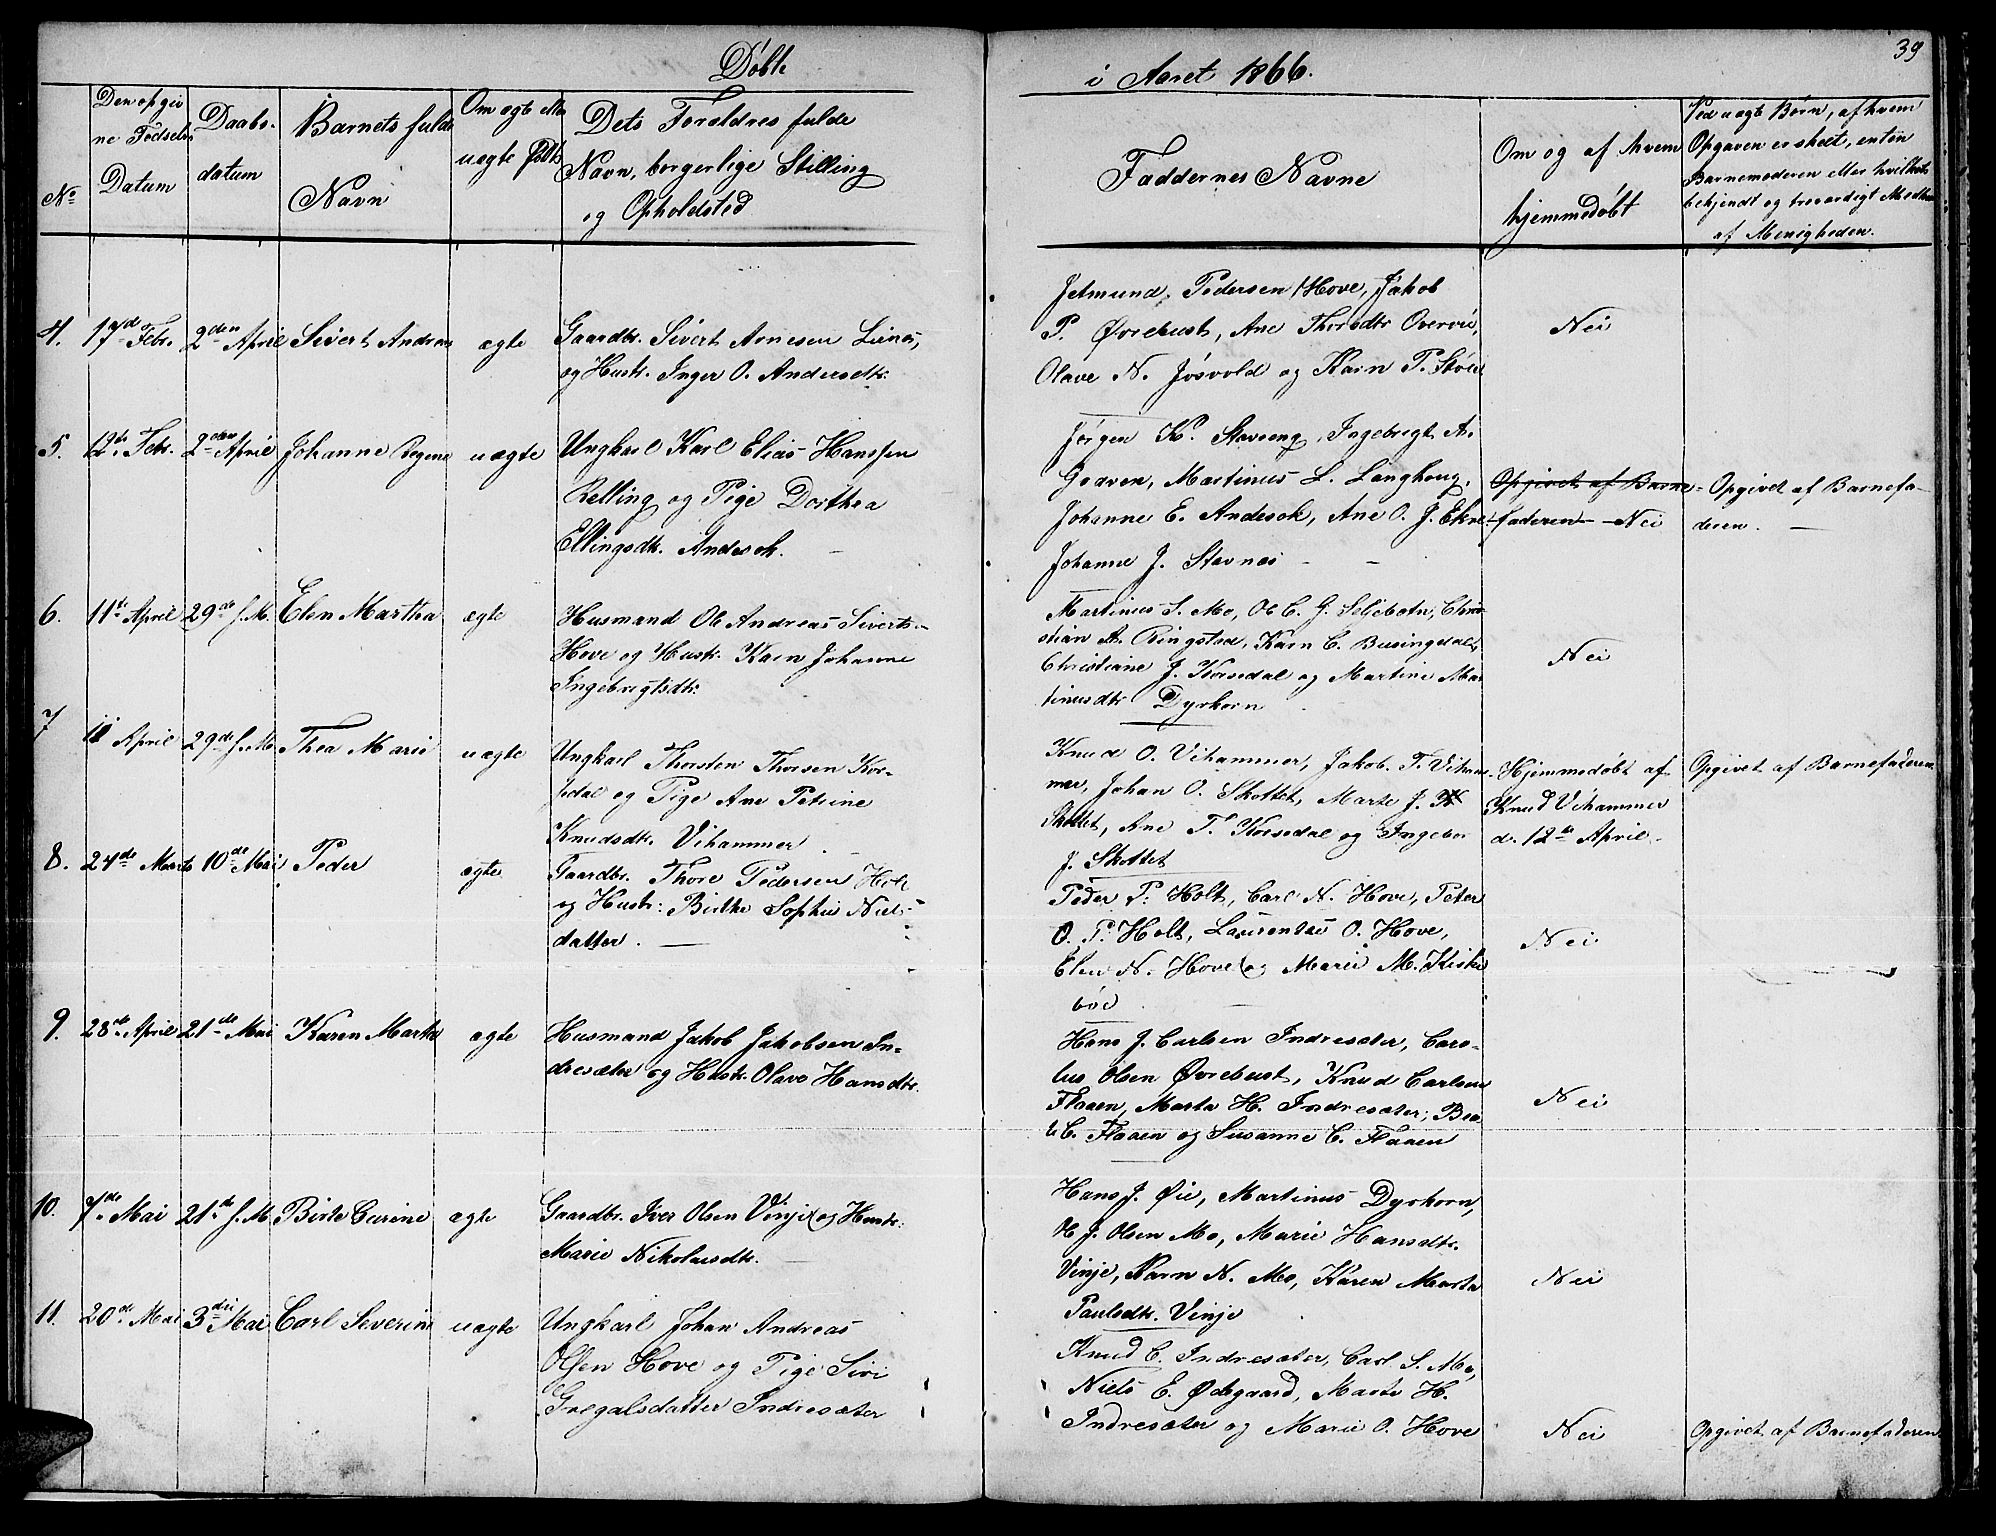 39
Døbte
i Aaret 1866.
No
Den opgivne Fødsels Datum
Daabsdatum
Barnets fulde Navn
Om ægte eller uægte født
Dets Forældres fulde
Navn, borgerlige Stilling
og Opholdsted
Faddernes Navne
Om og af hvem
hjemmedøbt
Ved uægte Børn, af hvem
Opgaven er skeet, enten
Barnemoderen eller hvilket
bekjendt og troværdigt Medlem
af Menigheden.
4. 17de Febr. 2den April Sivert Andreas ægte
Gaardbr. Sivert Arnesen
og Hustr. Inger O. Andersdtr.
Jetmund Pedersen Hove, Jakob
P. Øvrebust, Ane Thorsdtr Overvii,
Olave N. Jøsvold og Karn P.
Nei
5. 12te Febr. 2den April Johanne Regene uægte
Ungkarl Karl Elias Hanssen
Relling og Pige Dorthea
Ellingsdtr. Andesok.
Jørgen K. Stavseng, Ingebrigt A.
Godøen, Martinus L. Langhoug,
Johanne E. Andesok, Ane O. J. Ekre
Johanne J. Stavnes
Opgivet af Barne-
faderen - Nei
Opgivet af Barnefa-
deren.
6. 11te April 29de s. M. Elen Martha ægte
Husmand Ole Andreas Siverts.
Hove og Hustr. Karn Johanne
Ingebrigtsdtr.
Martinus S. Mo, Ole C. G. Seljebotn, Chri-
stian A. Ringstad, Karn C. Busingdal,
Christiane J. Korsedal og Martine Mar-
tinusdtr Dyrkorn
Nei
7 11 April 29de s. M. Thea Marie uægte
Ungkarl Thorsten Thorsen Kor-
sedal og Pige Ane Petrine
Knudsdtr. Vihammer
Knud O. Vihammer, Jakob T. Viham-
mer, Johan O. Skottet, Marte J.
Skottet, Ane T. Korsedal og Ingebor
J. Skottet
Hjemmedøbt af
Knud Vihammer
d. 12te April.
Opgivet af Barnefaderen
8. 24de Marts 10de Mai Peder ægte
Gaardbr. Thore Pedersen Holt
og Hustr: Birthe Sophie Niels-
datter.
Peder P. Holt, Carl N. Hove, Peter
O. P. Holt, Laurentse O. Hove,
Elen N. Hove og Marie M. Kirke
bøe
Nei
9. 28de April 21de Mai Karen Marta ægte
Husmand Jakob Jakobsen In-
dresæter og Hustr. Olave Hansdtr.
Hans J. Carlsen Indresæter, Caro-
lus Olsen Øvrebust, Knud Carlsen
Flaaen, Marta H. Indresæter, Bea-
te C. Flaaen og Susanne C. Flaaen
Nei
10. 7de Mai 21de s. M. Birte Carine ægte
Gaardbr. Iver Olsen Vinje og Hustr:
Marie Nikolaisdtr.
Hans J. Øie, Martinus Dyrkorn,
Ole J. Olsen Mo, Marie Hansdtr.
Vinje, Karn N. Mo, Karen Marta
Paulsdtr. Vinje
Nei
11. 20de Mai 3die Mai Carl Severin uægte
Ungkarl Johan Andreas
Olsen Hove og Pige Siri
Gregalsdatter Indresæter
Knud C. Indresæter, Carl S. Mo,
Niels E. Ødegaard, Marte H.
Indresæter og Marie O. Hove
Nei
Opgivet af Barnefaderen